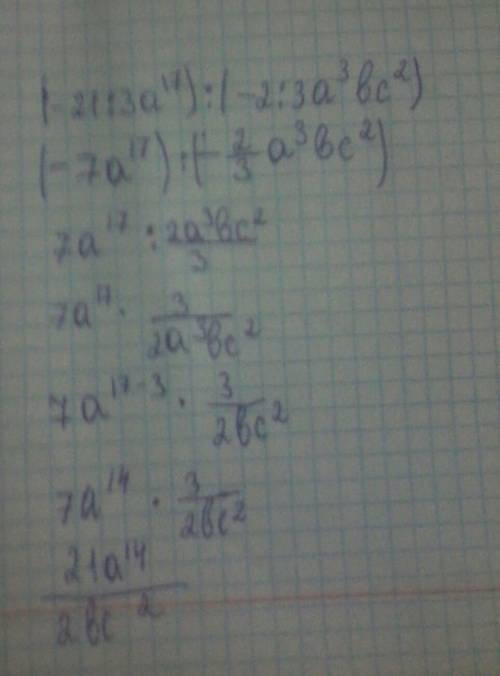 (-21:3a¹⁷):(-2:3a³bc²)
(-7a¹⁷):(-2/3 a³bc²)
7a¹⁷ : 2a³bc²/3
7a¹⁷ · 3/2a³bc²
7a¹⁷⁻³ · 3/2bc²
7a¹⁴ · 3/2bc²
21a¹⁴/2bc²